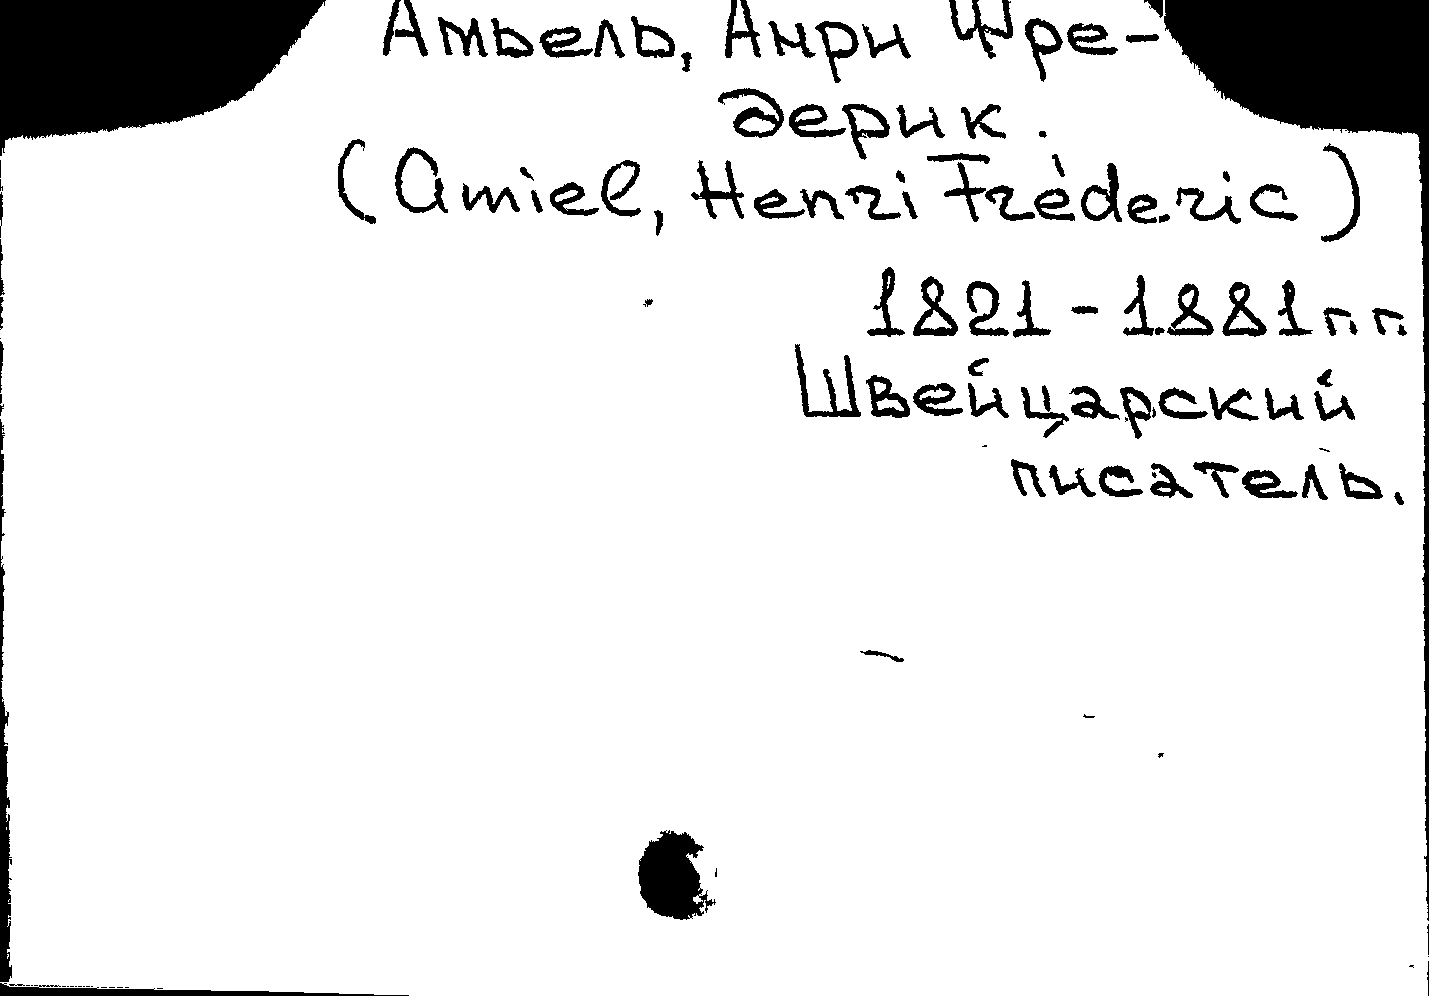 Амьель, Анри Фре-
дерик.
(Amiel, Henri Fréderic)
1821-1881гг
Швейцарский
писатель.